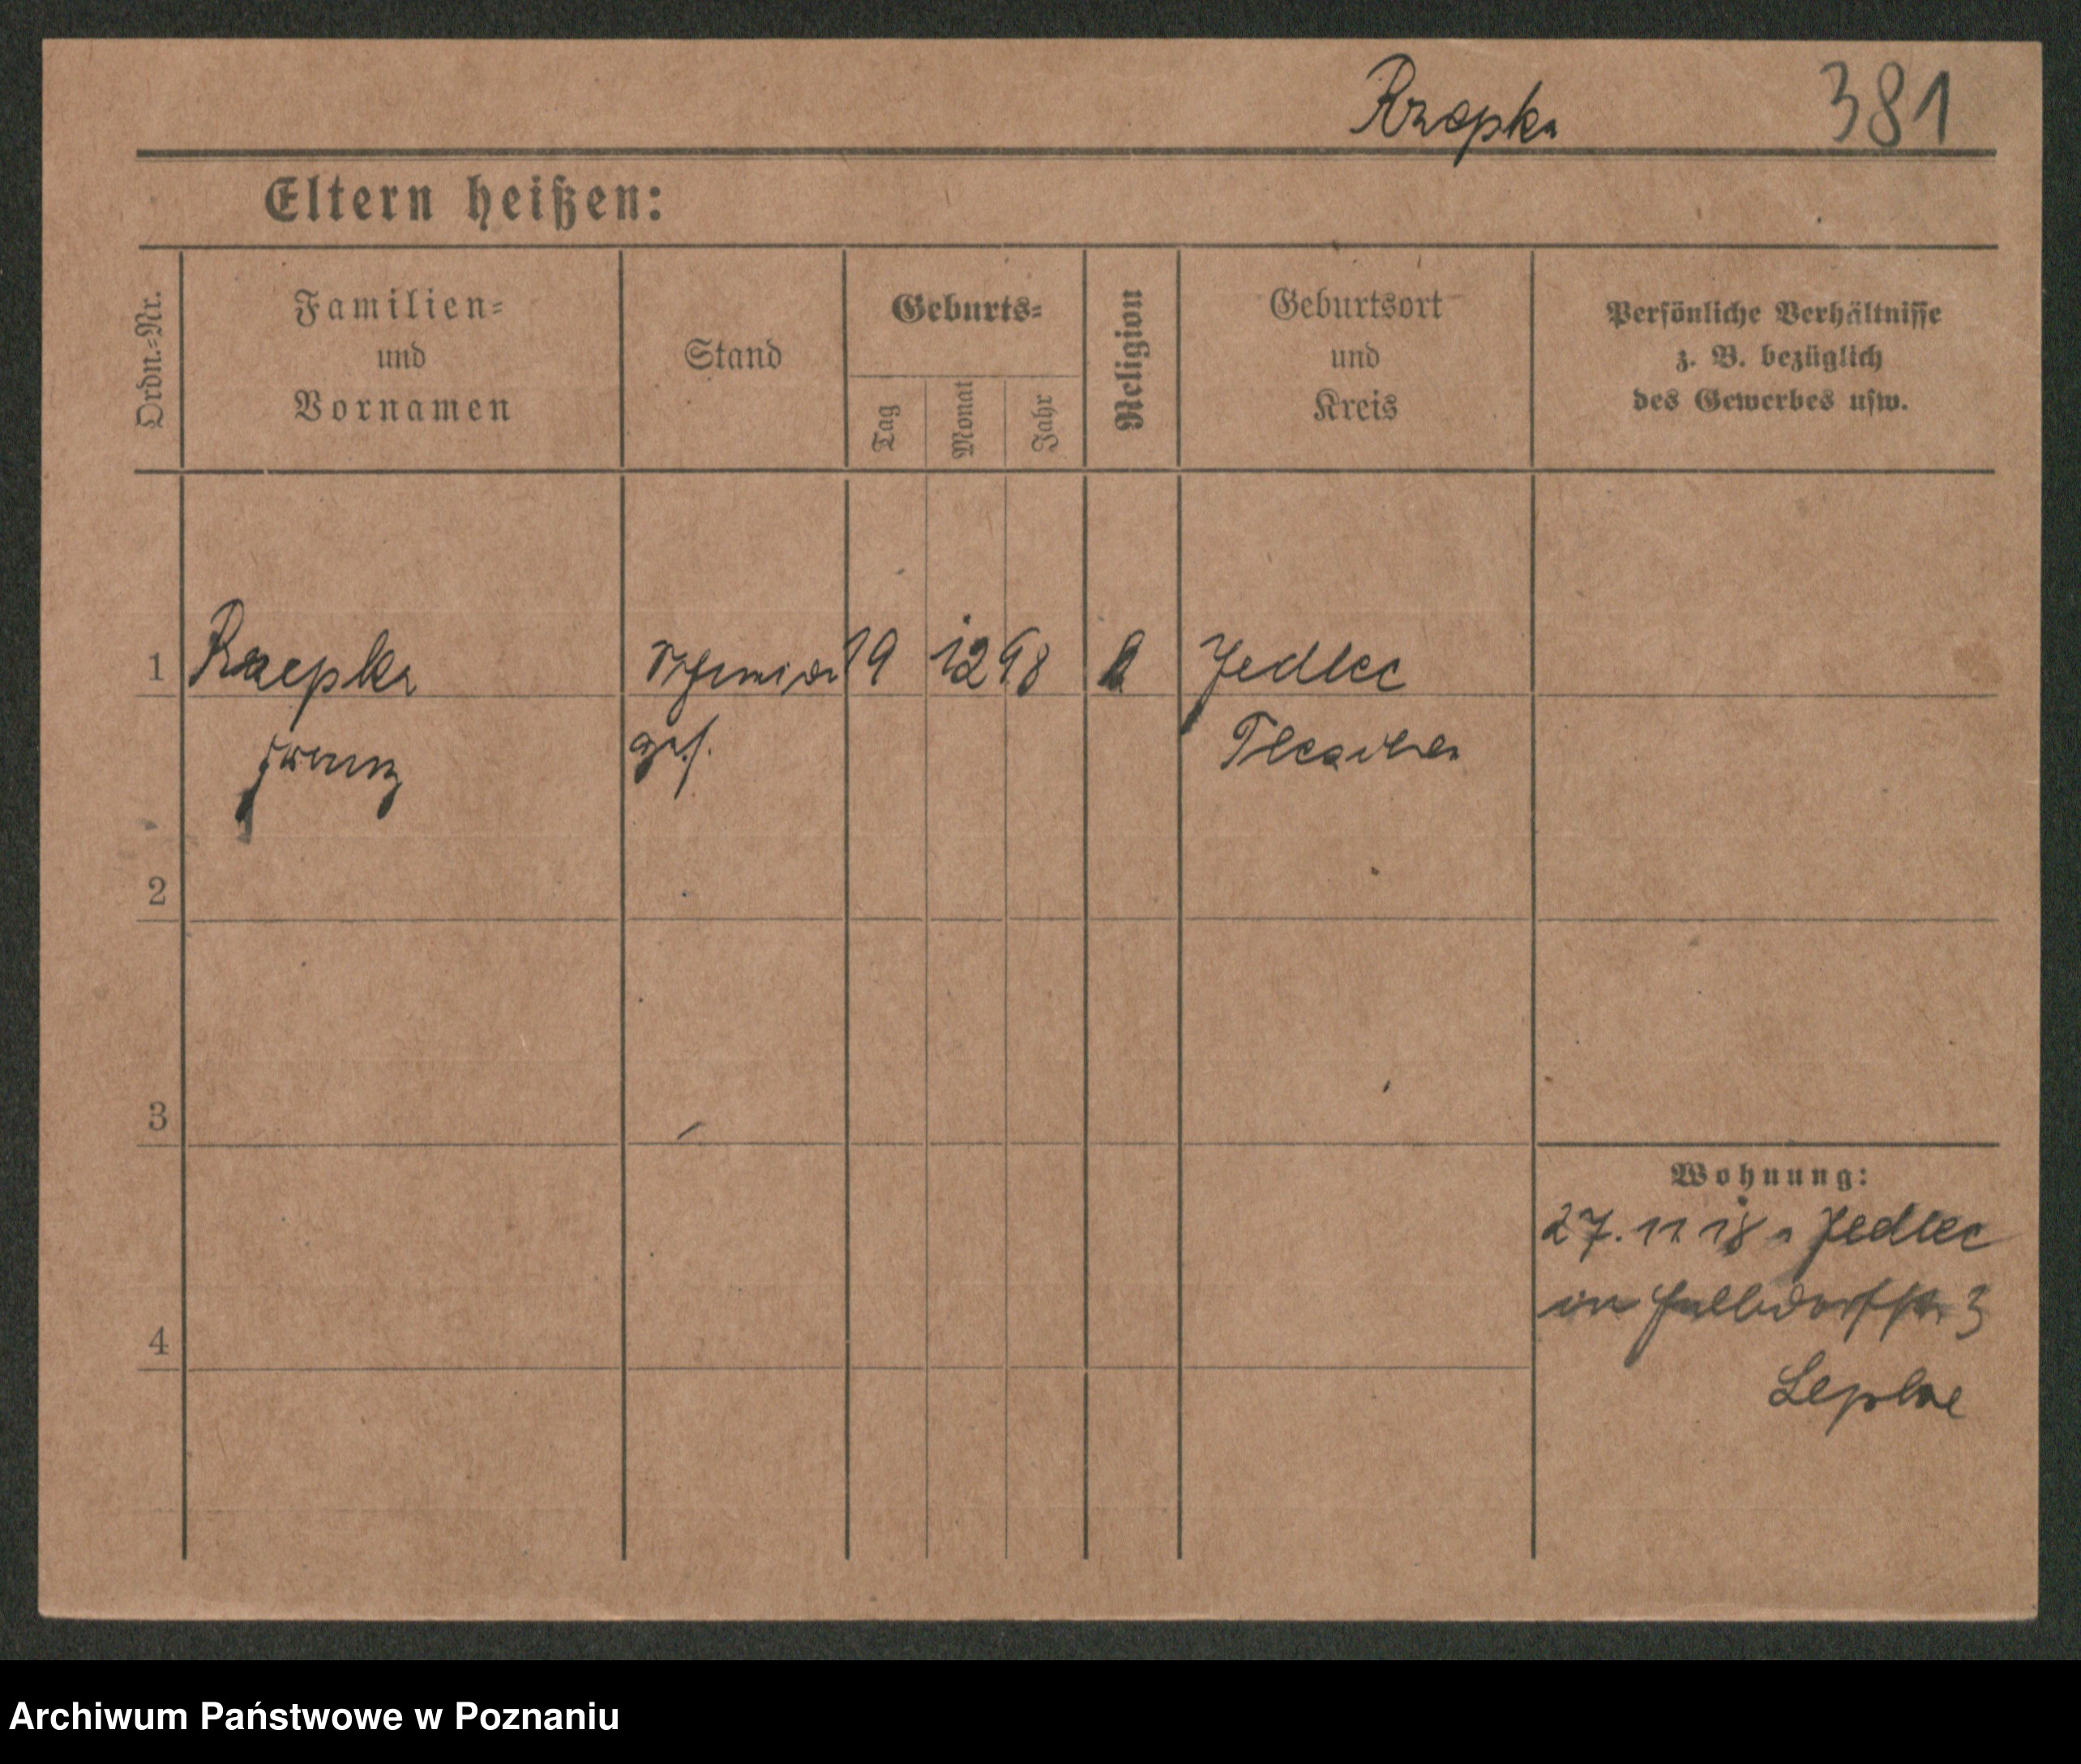 Rzepka 381
Eltern heißen:
Ordn.-Nr.
Familien-
und
Vornamen
Stand
Geburts-
Tag
Monat
Jahr
Religion
Geburtsort
und
Kreis
Persönliche Verhältnisse
z. B. bezüglich
des Gewerbes usw.
1 Rzepka 19 12 98 k Jedlec
Franz ges. Pleschen
2
3
Wohnung:
27. 11 18 Jedlec
in 3
4
Archiwum Państwowe w Poznaniu